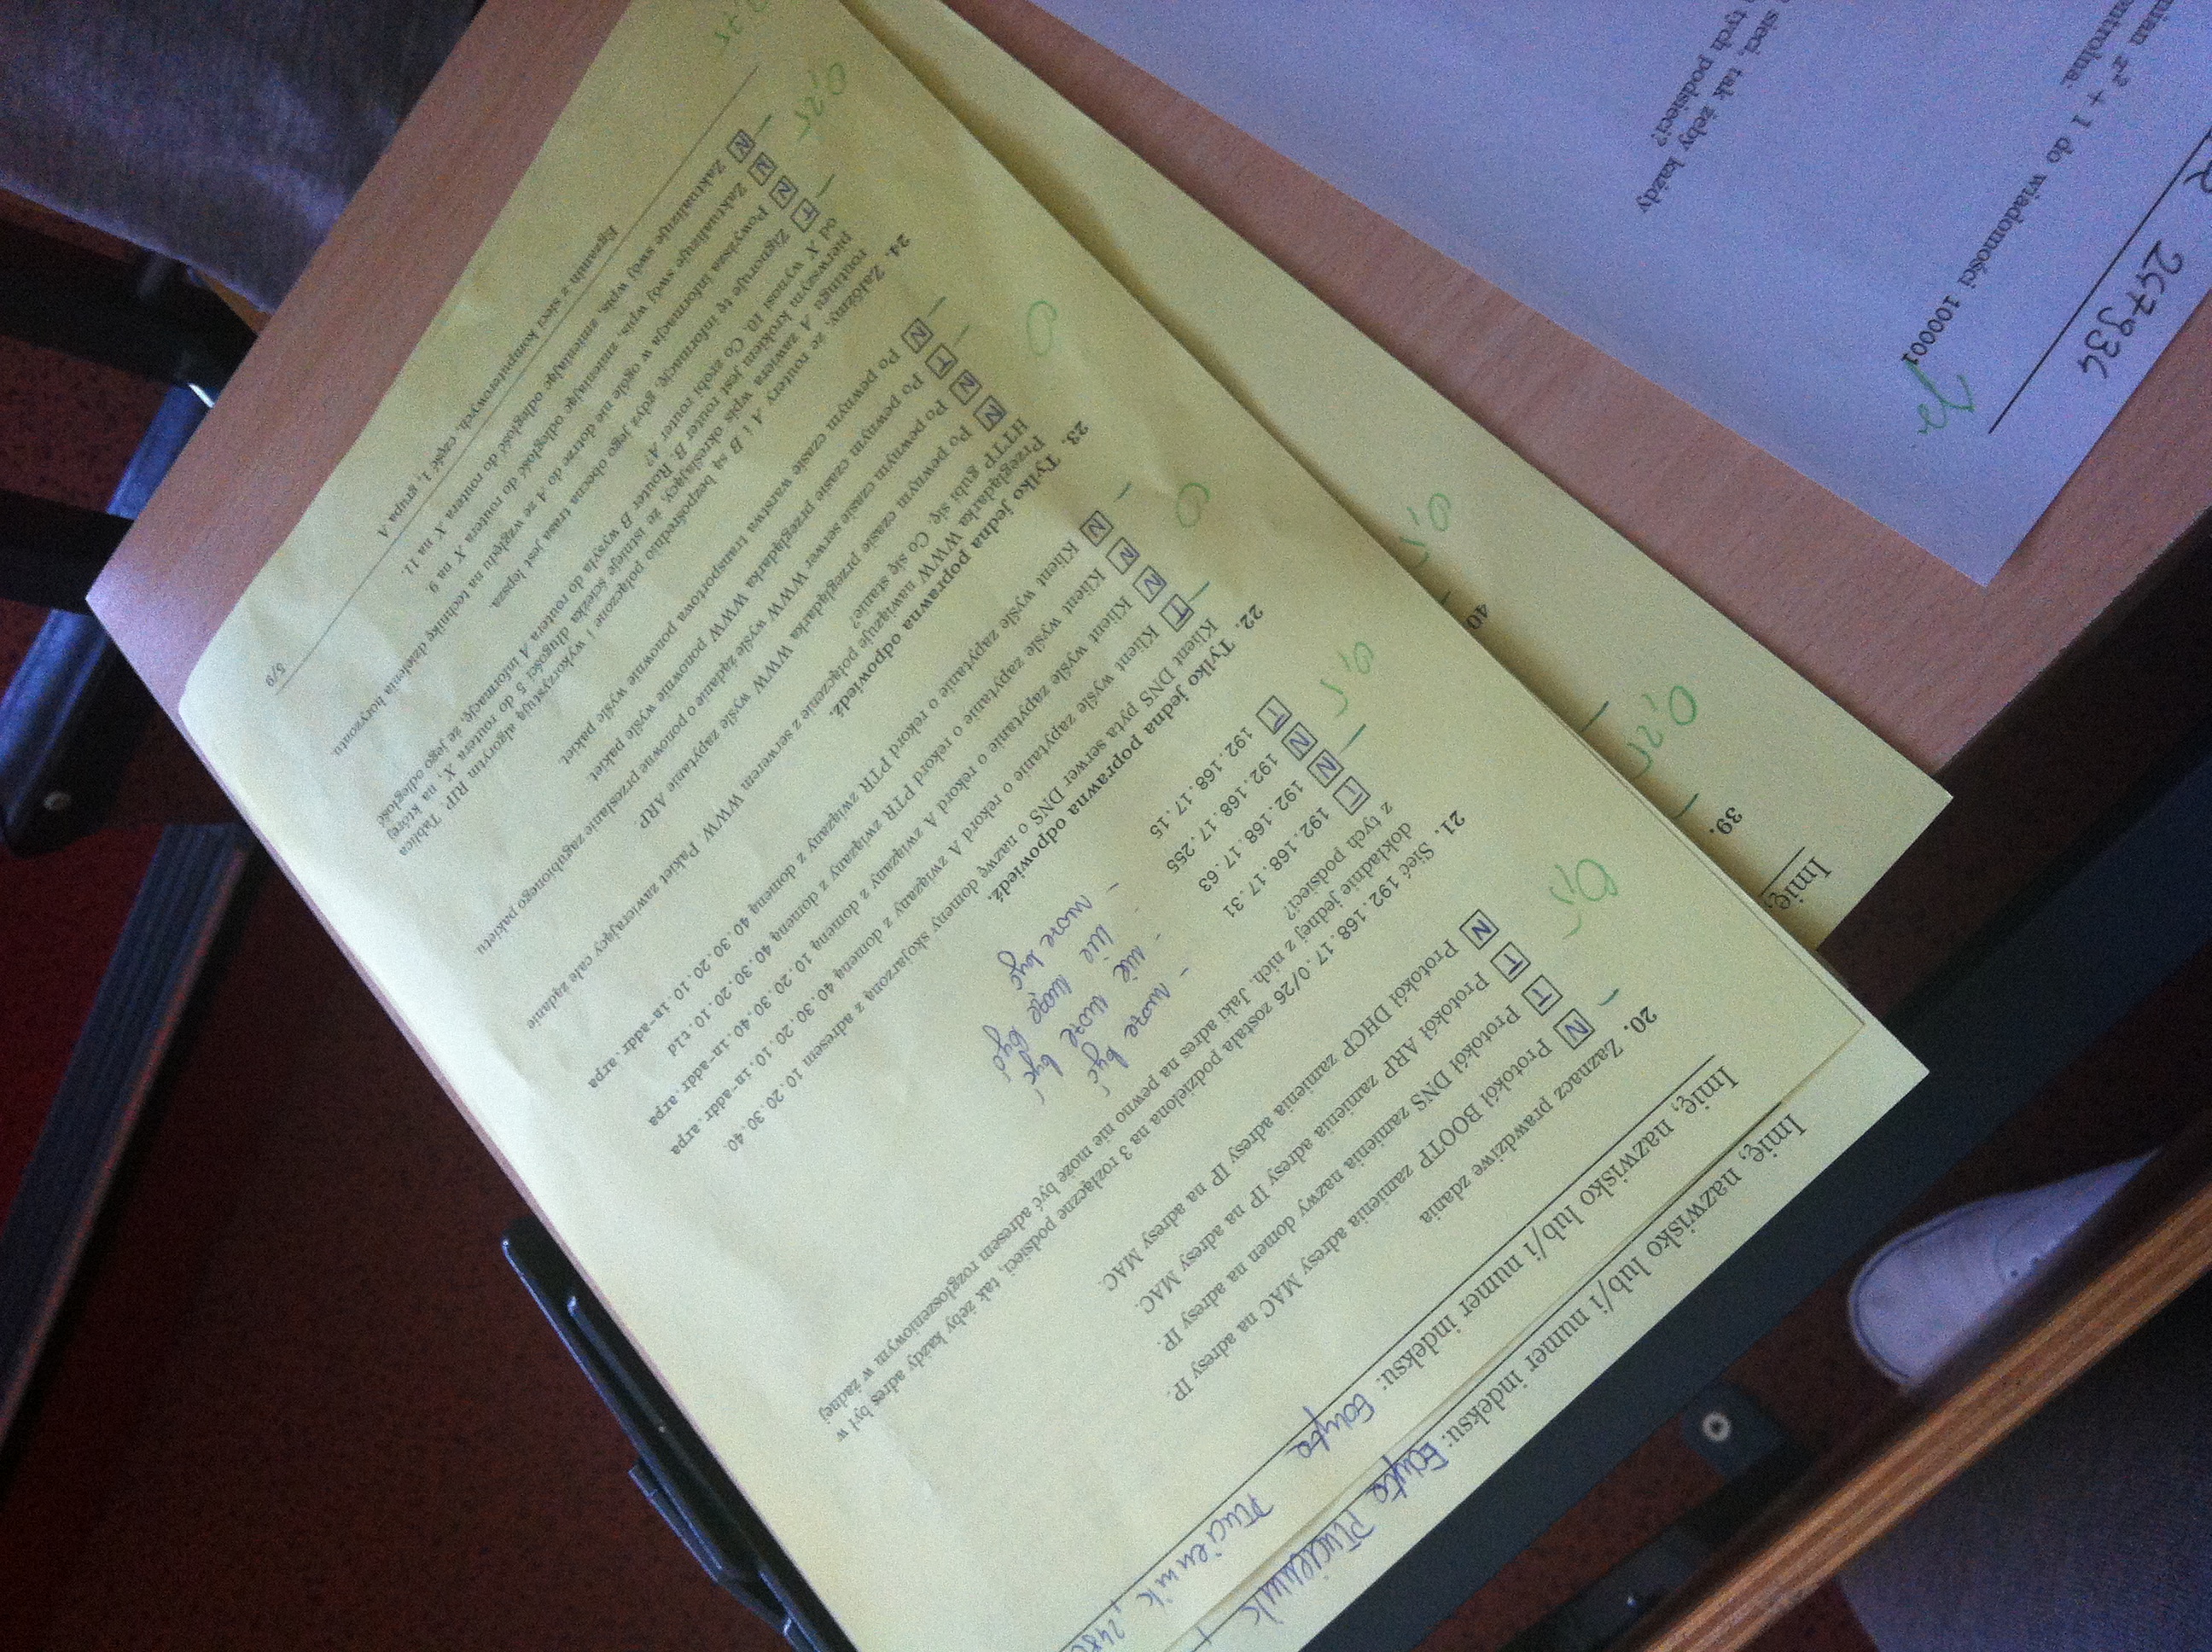 Imię, nazwisko lub/i numer indeksu: Edyta Płuciennik
Imię, nazwisko lub/i numer indeksu: Edyta Płuciennik
20. Zaznacz prawdziwe zdania
N Protokół BOOTP zamienia adresy MAC na adresy IP.
T Protokół DNS zamienia nazwy domen na adresy IP.
T Protokół ARP zamienia adresy IP na adresy MAC.
N Protokół DHCP zamienia adresy IP na adresy MAC.
0,5
21. Sieć 192.168.17.0/26 została podzielona na 3 rozłączne podsieci, tak żeby każdy adres był w
dokładnie jednej z nich. Jaki adres na pewno nie może być adresem rozgłoszeniowym w żadnej
z tych podsieci?
T 192.168.17.31 - może być
N 192.168.17.63 - nie może być
N 192.168.17.255 - nie może być
T 192.168.17.15 - może być
0,5
22. Tylko jedna poprawna odpowiedź.
Klient DNS pyta serwer DNS o nazwę domeny skojarzoną z adresem 10.20.30.40.
T Klient wyśle zapytanie o rekord A związany z domeną 40.30.20.10.in-addr.arpa
N Klient wyśle zapytanie o rekord A związany z domeną 10.20.30.40.in-addr.arpa
N Klient wyśle zapytanie o rekord PTR związany z domeną 40.30.20.10.tld
N Klient wyśle zapytanie o rekord PTR związany z domeną 40.30.20.10.in-addr.arpa
0
23. Tylko jedna poprawna odpowiedź.
Przeglądarka WWW nawiązuje połączenie z serwerem WWW. Pakiet zawierający całe żądanie
HTTP gubi się. Co się stanie?
N Po pewnym czasie przeglądarka WWW wyśle zapytanie ARP
N Po pewnym czasie serwer WWW wyśle żądanie o ponowne przesłanie zagubionego pakietu.
T Po pewnym czasie przeglądarka WWW ponownie wyśle pakiet.
N Po pewnym czasie warstwa transportowa ponownie wyśle pakiet.
0
24. Załóżmy, że routery A i B są bezpośrednio połączone i wykorzystują algorytm RIP. Tablica
routingu A zawiera wpis określający, że istnieje ścieżka długości 5 do routera X, na której
pierwszym krokiem jest router B. Router B wysyła do routera A informację, że jego odległość
od X wynosi 10. Co zrobi router A?
T Zignoruje tę informację, gdyż jego obecna trasa jest lepsza.
N Powyższa informacja w ogóle nie dotrze do A ze względu na technikę dzielenia horyzontu.
N Zaktualizuje swój wpis, zmieniając odległość do routera X na 9.
N Zaktualizuje swój wpis, zmieniając odległość do routera X na 11.
0,25
Egzamin z sieci komputerowych, część 1, grupa A
5/9
Imię,
39.
0,25
40
0,5
247934
do wiadomości 100001
x² + 1
sieci, tak żeby każdy
tych podsieci?